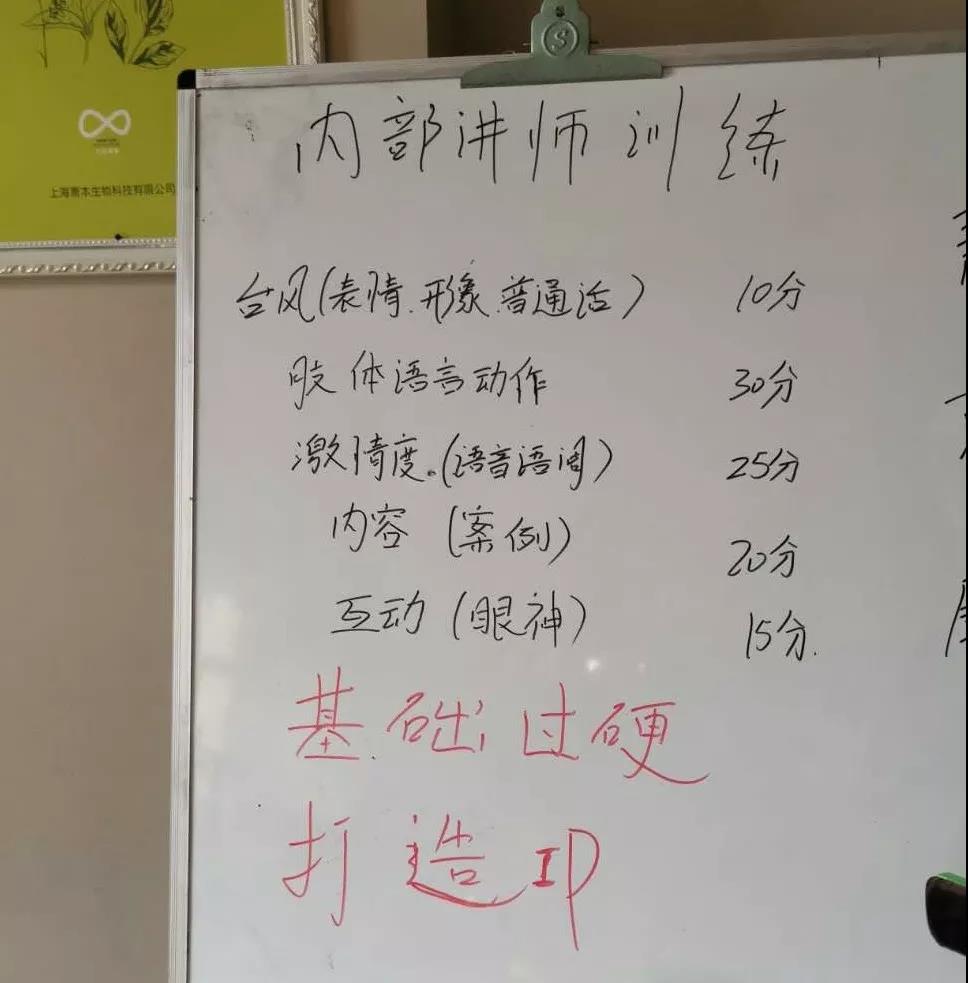 上海惠本生物科技有限公司
内部讲师训练
台风(表情.形象.普通话) 10分
肢体语言动作 30分
激情度.(语音语调) 25分
内容(案例) 20分
互动(眼神) 15分.
基础过硬
打造IP